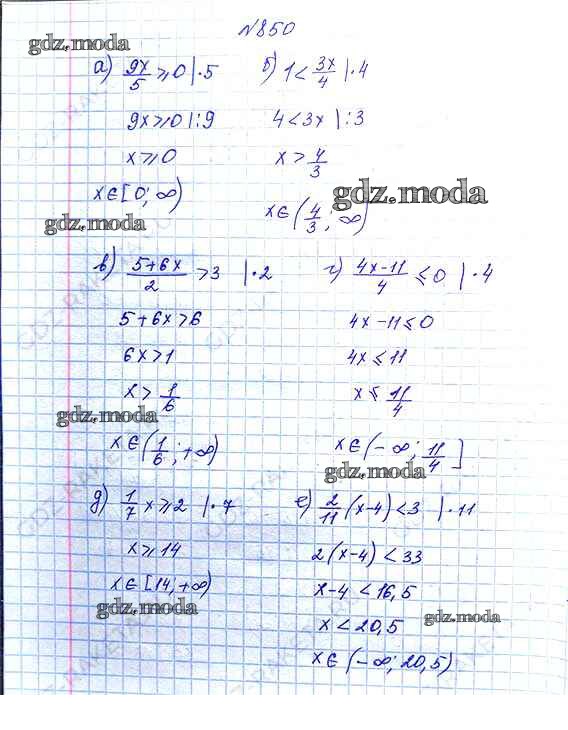 №850
gdz.moda
а) 9x/5 ⩾ 0 | · 5
9x ⩾ 0 | : 9
x ⩾ 0
x ∈ [0; ∞)
gdz.moda
б) 1 < 3x/4 | · 4
4 < 3x | : 3
x > 4/3
gdz.moda
x ∈ (4/3; ∞)
в) (5+6x)/2 > 3 | · 2
5+6x > 6
6x > 1
x > 1/6
gdz.moda
x ∈ (1/6; +∞)
г) (4x-11)/4 ⩽ 0 | · 4
4x-11 ⩽ 0
4x ⩽ 11
x ⩽ 11/4
x ∈ (-∞; 11/4]
gdz.moda
д) 1/7 x ⩾ 2 | · 7
x ⩾ 14
x ∈ [14; +∞)
gdz.moda
е) 2/11 (x-4) < 3 | · 11
2(x-4) < 33
x-4 < 16,5
gdz.moda
x < 20,5
x ∈ (-∞; 20,5)